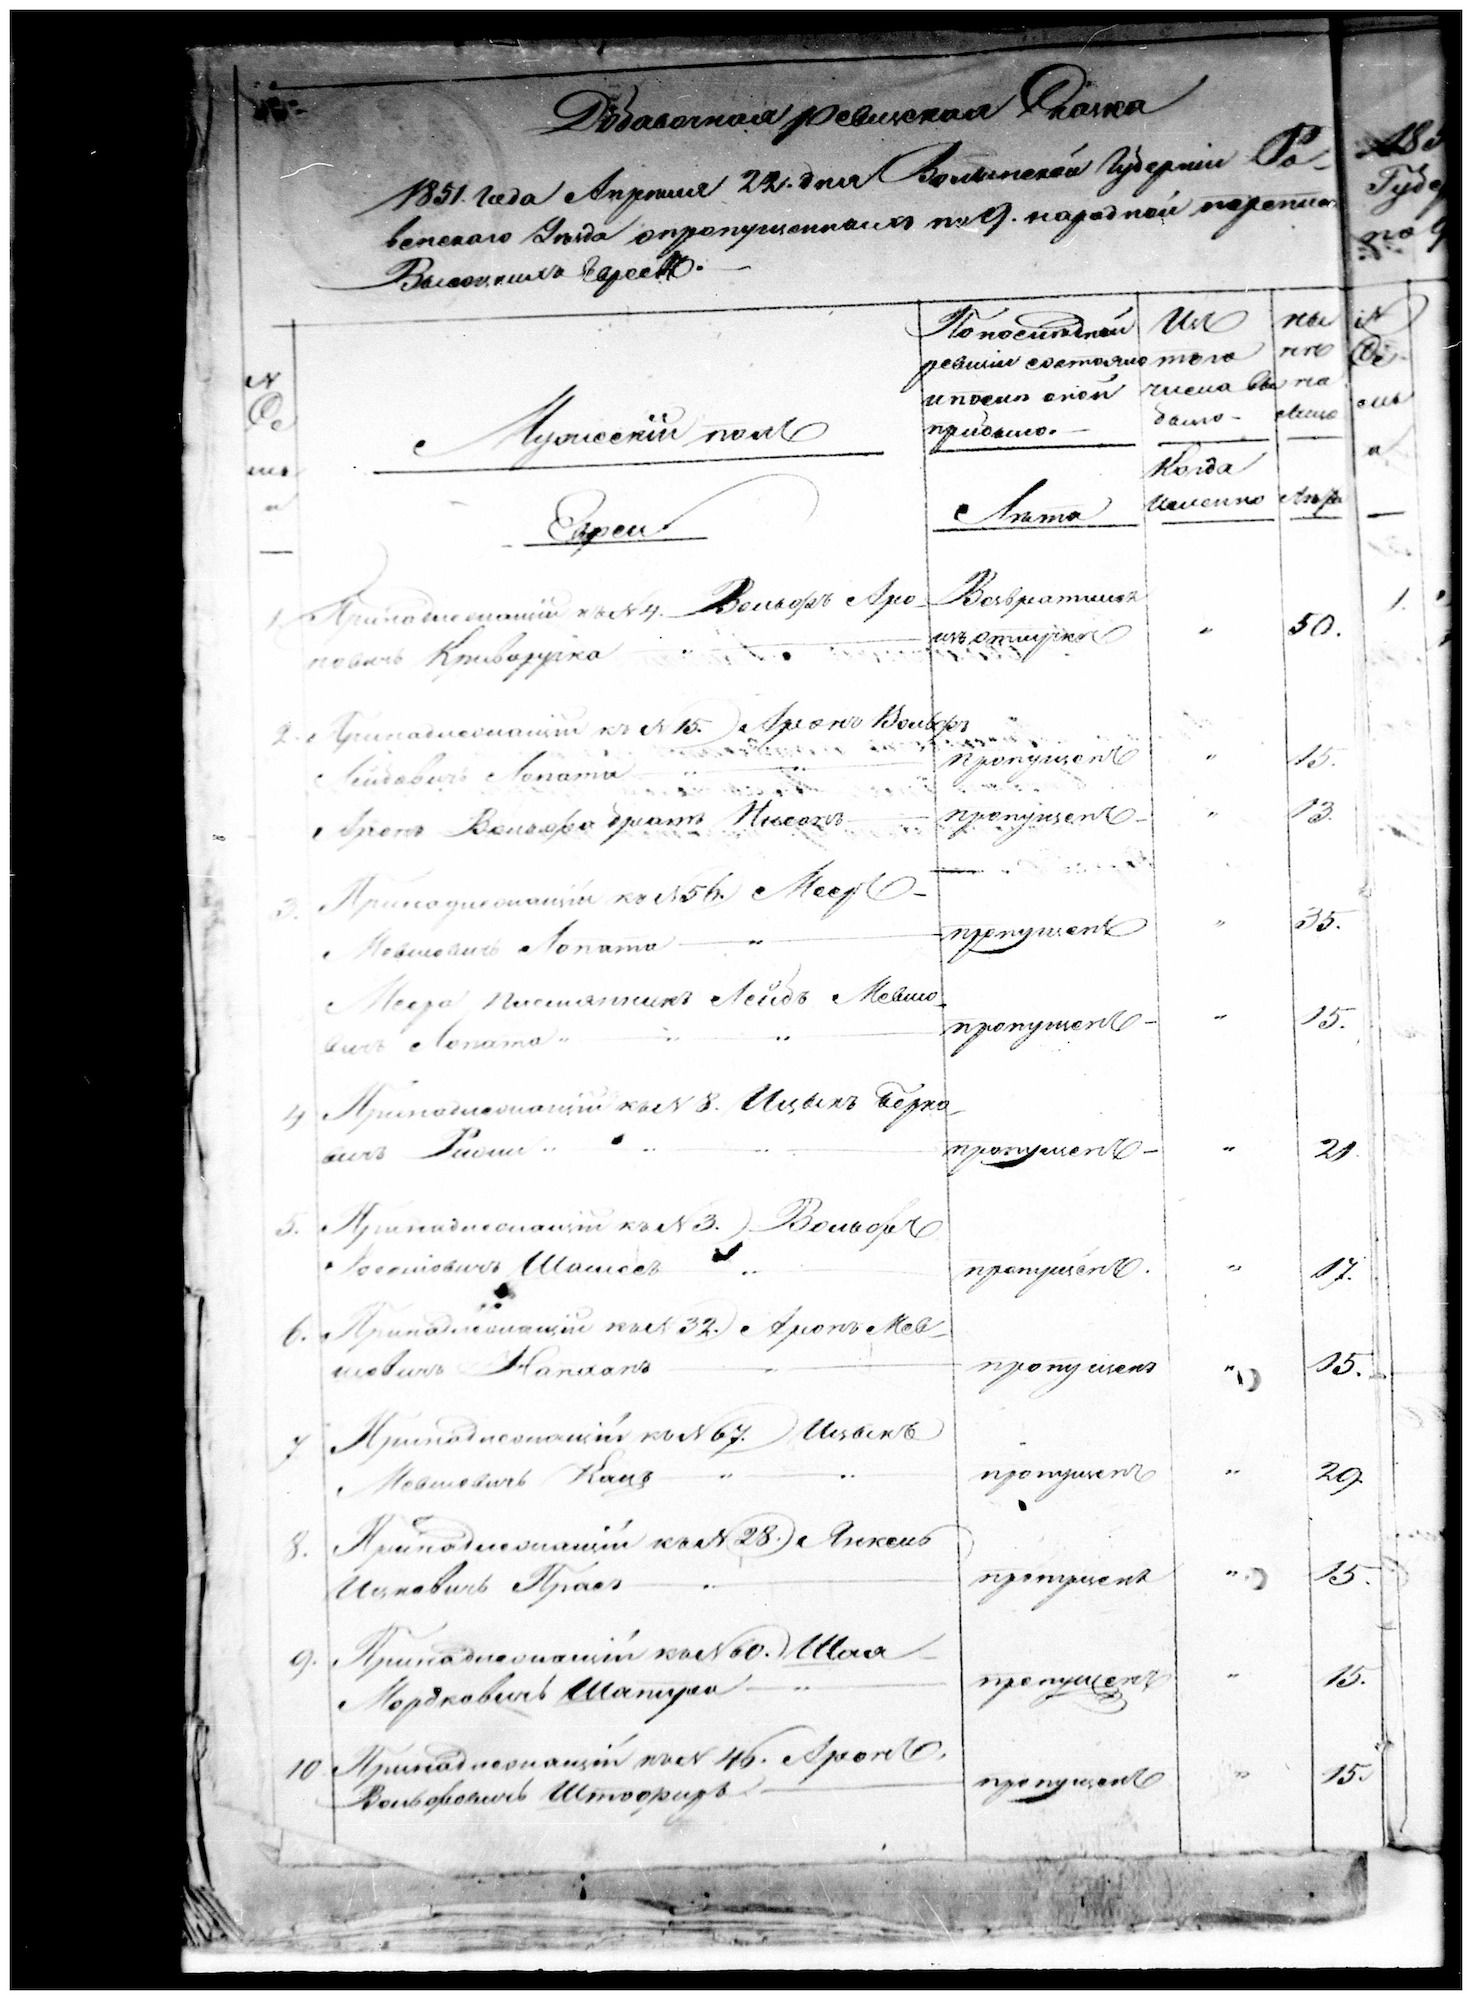 Добавочная ревизская Сказка
1851. года Апреля 22. дня Волынской Губернии Ро-
венского Уезда о пропущенных по 9. народной переписи
Высоцких Евреев.
№
Се
мь
и
Мужеский полъ
Евреи
По последней
ревизии состояло
и после оной
прибыло.
Лета
Изъ
того
числа вы
было
Когда
именно
Ны
не
на
лицо
Лета
1. Принадлежащий къ № 4. Вольфъ Аро-
новичъ Криворучка
Возвратился
изъ отлучки " 50.
2. Принадлежащий къ № 15. Аронъ Вольфъ
Лейбовичъ Лопата пропущенъ " 15.
Аронъ Вольфа братъ Нисонъ пропущенъ " 13.
3. Принадлежащий къ № 56. Мееръ
Мовшовичъ Лопата пропущенъ " 35.
Меера племянникъ Лейбъ Мовшо-
вичъ Лопата пропущенъ " 15.
4 Принадлежащий къ № 8. Ицыкъ Берко-
вичъ пропущенъ " 21
5. Принадлежащий къ № 3. Вольфъ
Шамесъ пропущенъ. " 17.
6. Принадлежащий къ № 32. Аронъ Мов-
шовичъ Капланъ пропущенъ " 15.
7 Принадлежащий къ № 67. Ицыкъ
Мовшовичъ Кацъ пропущенъ " 29.
8. Принадлежащий къ № 28. Янкель
Ицковичъ Прасъ пропущенъ " 15.
9. Принадлежащий къ № 60. Шая
Мордковичъ Шапиро пропущенъ " 15.
10 Принадлежащий къ № 46. Аронъ
Вольфовичъ Штофиръ пропущенъ " 15.